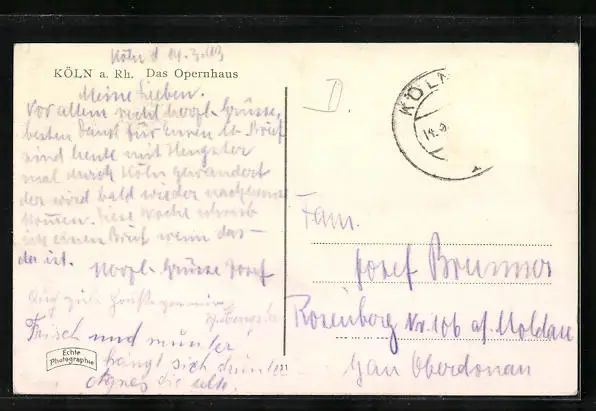 Köln d 14.3.43
KÖLN a. Rh. Das Opernhaus
Meine Lieben.
Vor allem recht herzl. Grüsse,
besten Dank für Euren lb. Brief
sind heute mit
mal durch Köln gewandert
der wird bald wieder nachhause
kommen. Diese Woche schreib
ich einen Brief wenn das
da ist. Herzl. Grüsse Josef
Frisch und munter
hängt sich drunter
Agnes die alte.
Echte
Photographie
D.
KÖLN
14.9.
Fam.
Josef Brunner
Rosenberg Nr. 106 a/Moldau
Gau Oberdonau